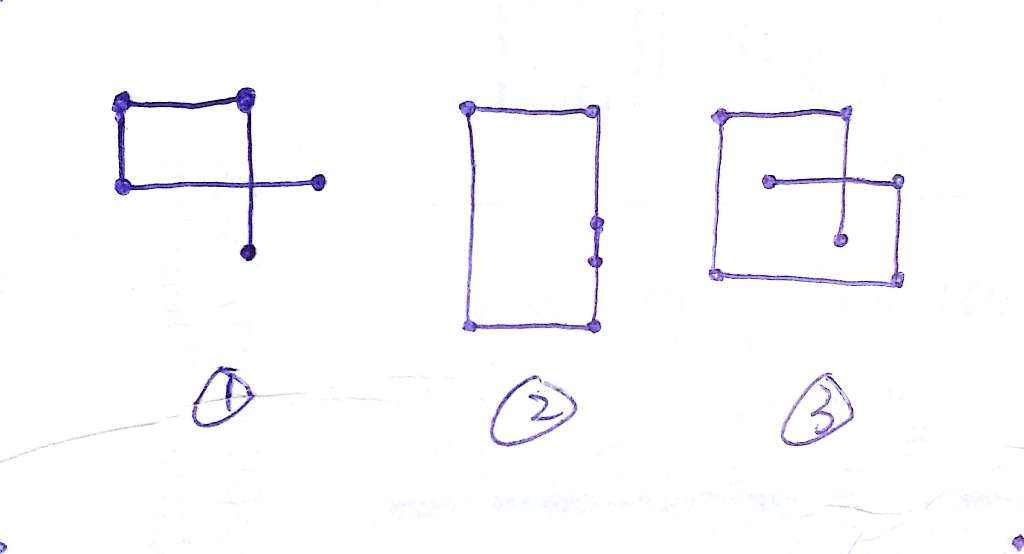 ① ② ③